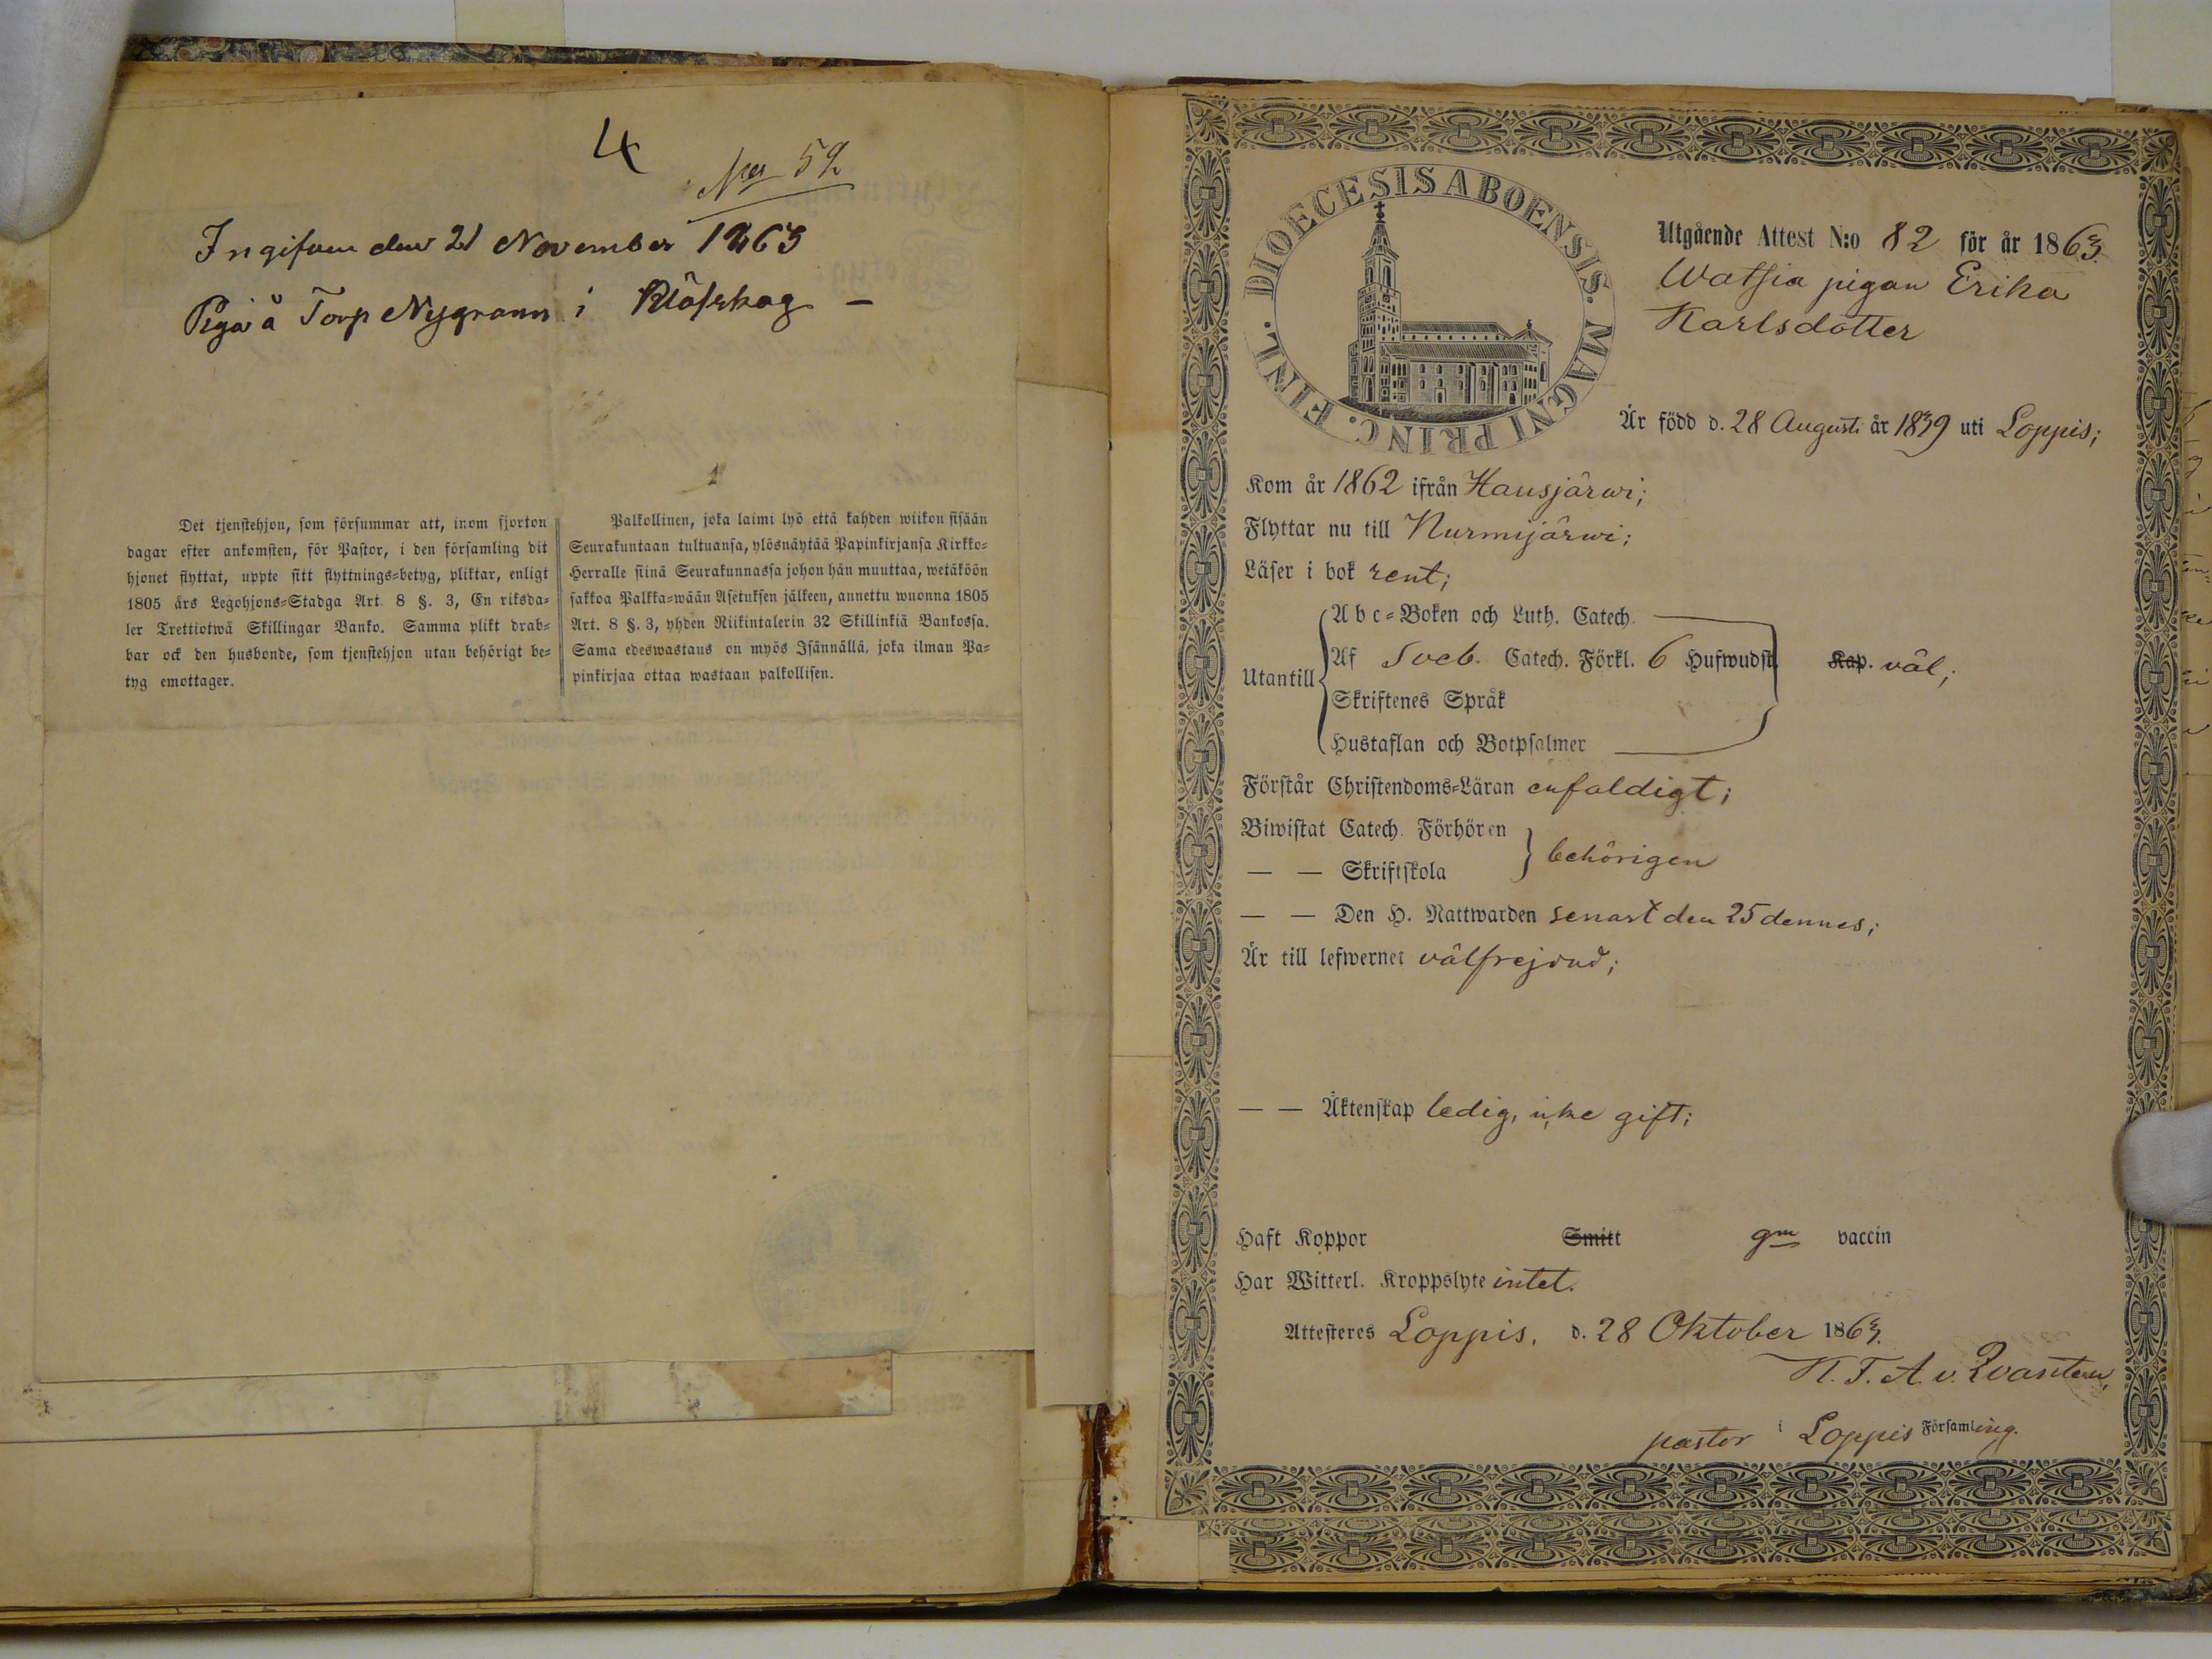 4
No 52
Ingifven den 21 November 1863
Piga å Torp Nygrann i Klöfskog –
Det tjenstehjon, som försummar att, inom fjorton
dagar efter ankomsten, för Pastor, i den församling dit
hjonet flyttat, uppte sitt flyttnings-betyg, pliktar, enligt
1805 års Legohjons-Stadga Art. 8 §. 3, En riksda-
ler Trettiotwå Skillingar Banko. Samma plikt drab-
bar ock den husbonde, som tjenstehjon utan behörigt be-
tyg emottager.
Palkollinen, joka laimi lyö että kahden wiikon sisään
Seurakuntaan tultuansa, ylösnäytää Papinkirjansa Kirkko-
Herralle siinä Seurakunnassa johon hän muuttaa, wetäköön
sakkoa Palkka-wään Asetuksen jälkeen, annettu wuonna 1805
Art. 8 §. 3, yhden Riikintalerin 32 Skillinkiä Bankossa.
Sama edeswastaus on myös Isännällä, joka ilman Pa-
pinkirjaa ottaa wastaan palkollisen.
DIOECESIS ABOENSIS. MAGNI PRINC. FINL.
Utgående Attest N:o 82 för år 1863.
Watsia pigan Erika
Karlsdotter
Är född d. 28 Augusti år 1839 uti Loppis;
Kom år 1862 ifrån Hausjärwi;
Flyttar nu till Nurmijärwi;
Läser i bok rent;
Utantill
A b c-Boken och Luth. Catech.
Af Sveb. Catech. Förkl. 6 Hufwudst. Kap. väl;
Skriftenes Språk
Hustaflan och Botpsalmer
Förstår Christendoms-Läran enfaldigt;
Biwistat Catech. Förhören
— — Skriftskola
behörigen
— — Den H. Nattwarden senast den 25 dennes;
Är till lefwernet välfrejdad;
— — Äktenskap ledig, icke gift;
Haft Koppor Smitt gm vaccin
Har Witterl. Kroppslyte intet.
Attesteres Loppis, d. 28 Oktober 1863.
N. F. A. v. Qvanten,
pastor i Loppis Församling.